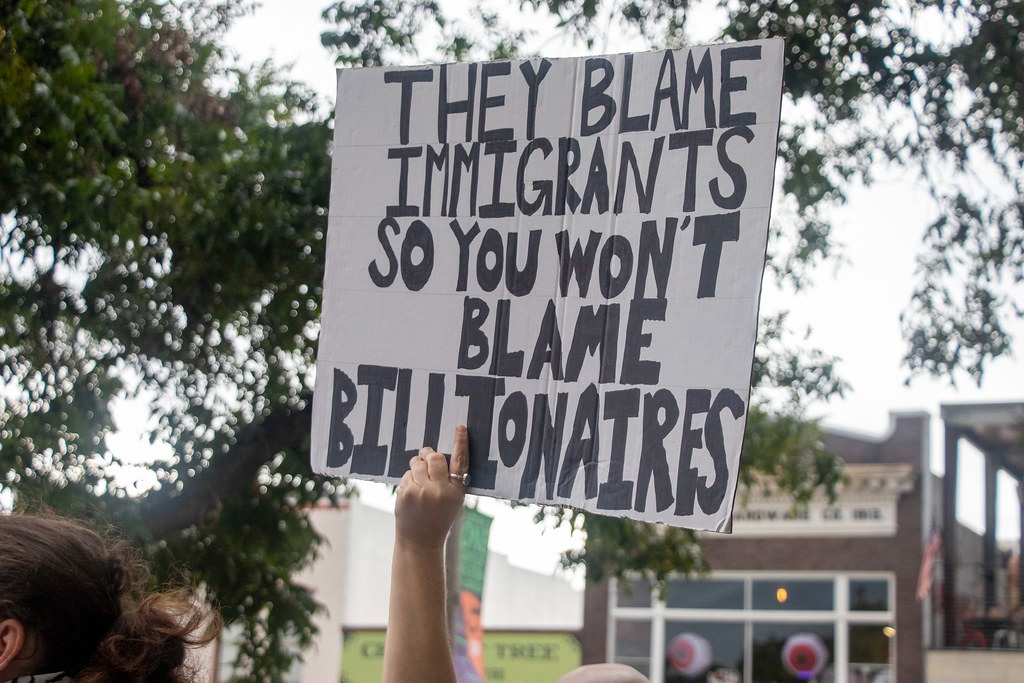 THEY BLAME
IMMIGRANTS
SO YOU WON'T
BLAME
BILLIONAIRES
TREE